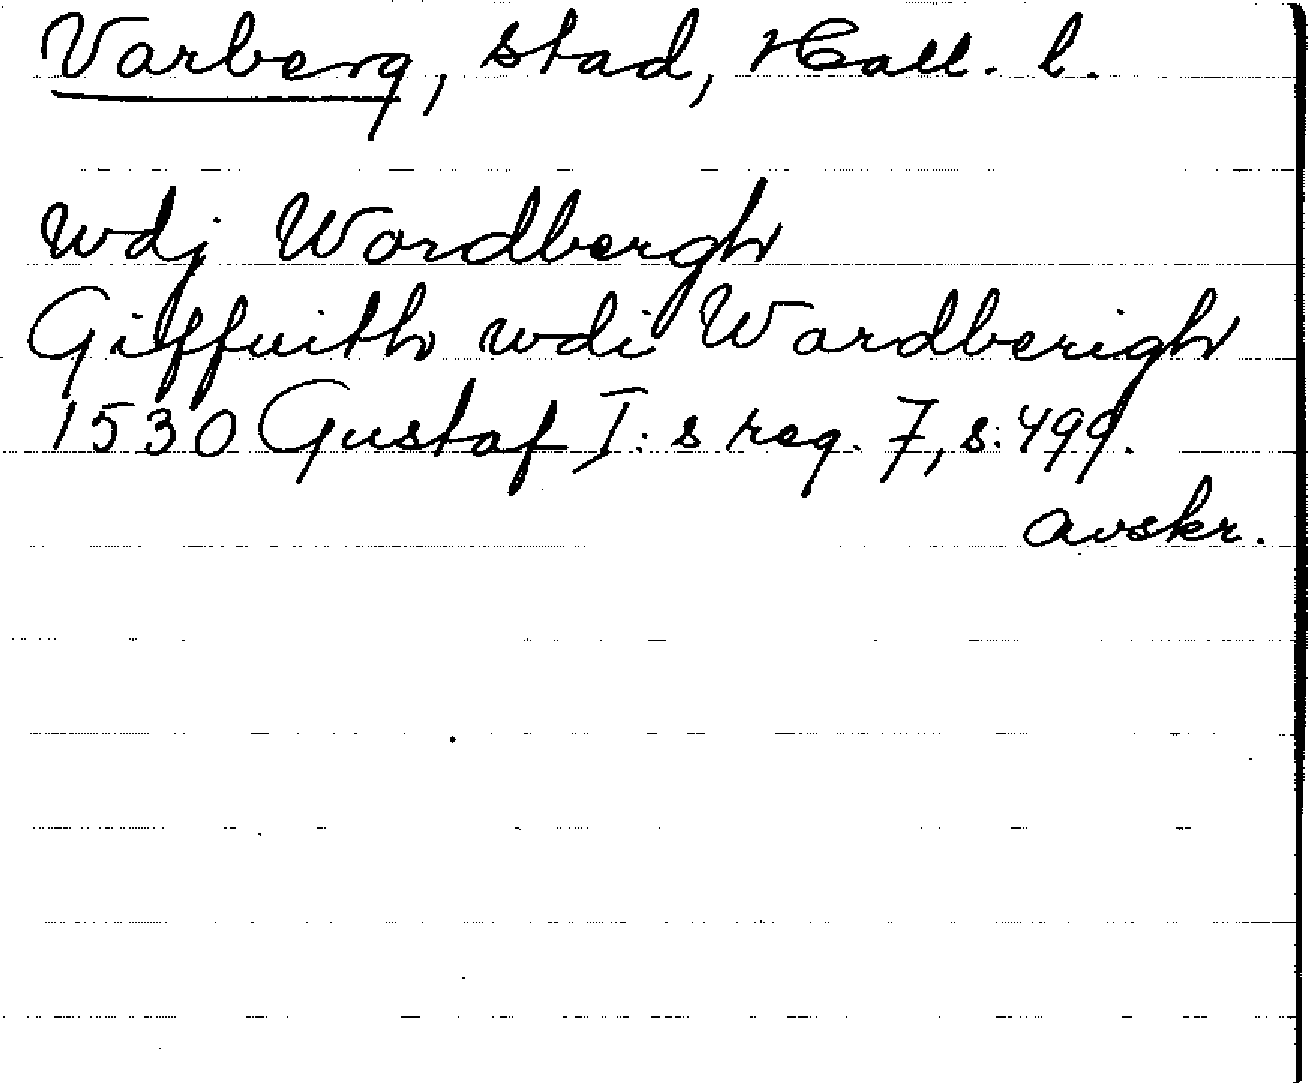 Varberg, stad, Hall. l.
wdj Wordbergh
Giffuith wdi Wardberigh
1530 Gustaf I:s reg. 7, s: 499.
avskr.